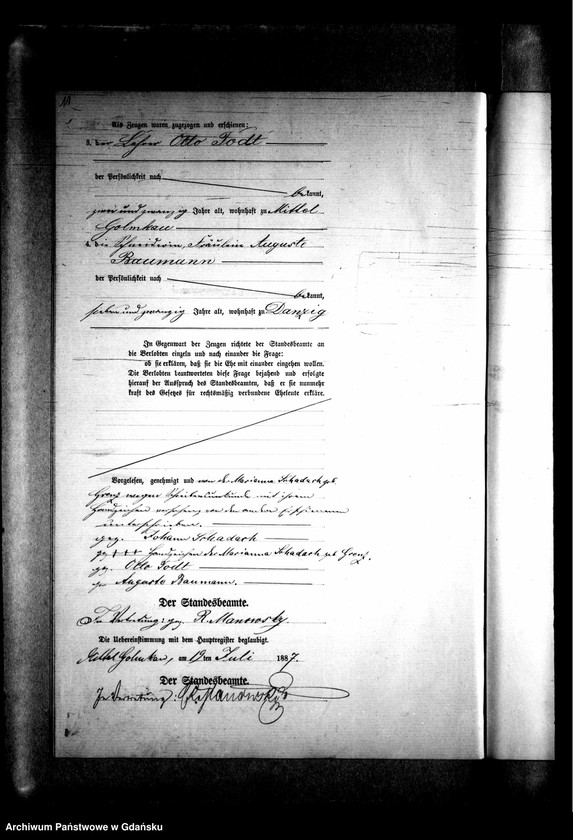 Als Zeugen waren zugezogen und erschienen:
3. der Lehrer Otto Todt
der Persönlichkeit nach
bekannt,
zwei und zwanzig Jahre alt, wohnhaft zu Mittel
Golmkau
4. die Schneiderin, Fräulein Auguste
Baumann
der Persönlichkeit nach
bekannt,
sieben und zwanzig Jahre alt, wohnhaft zu Danzig
In Gegenwart der Zeugen richtete der Standesbeamte an
die Verlobten einzeln und nach einander die Frage:
ob sie erklären, daß sie die Ehe mit einander eingehen wollen.
Die Verlobten beantworteten diese Frage bejahend und erfolgte
hierauf der Ausspruch des Standesbeamten, daß er sie nunmehr
kraft des Gesetzes für rechtsmäßig verbundene Eheleute erkläre.
Vorgelesen, genehmigt und von der Marianna Schadach geb
wegen Schreibensunkunde mit ihrem
Handzeichen versehen, von den andern Erschienenen
unterschrieben.
gez. Johann Schadach
gez +++ Handzeichen der Marianna Schadach geb
gez. Otto Todt
gez Auguste Baumann.
Der Standesbeamte.
In Vertretung: gez. R. Manowsky.
Die Uebereinstimmung mit dem Hauptregister beglaubigt.
Mittel Golmkau, am 19ten Juli 1887.
Der Standesbeamte.
In Vertretung: R. Manowsky
Archiwum Państwowe w Gdańsku